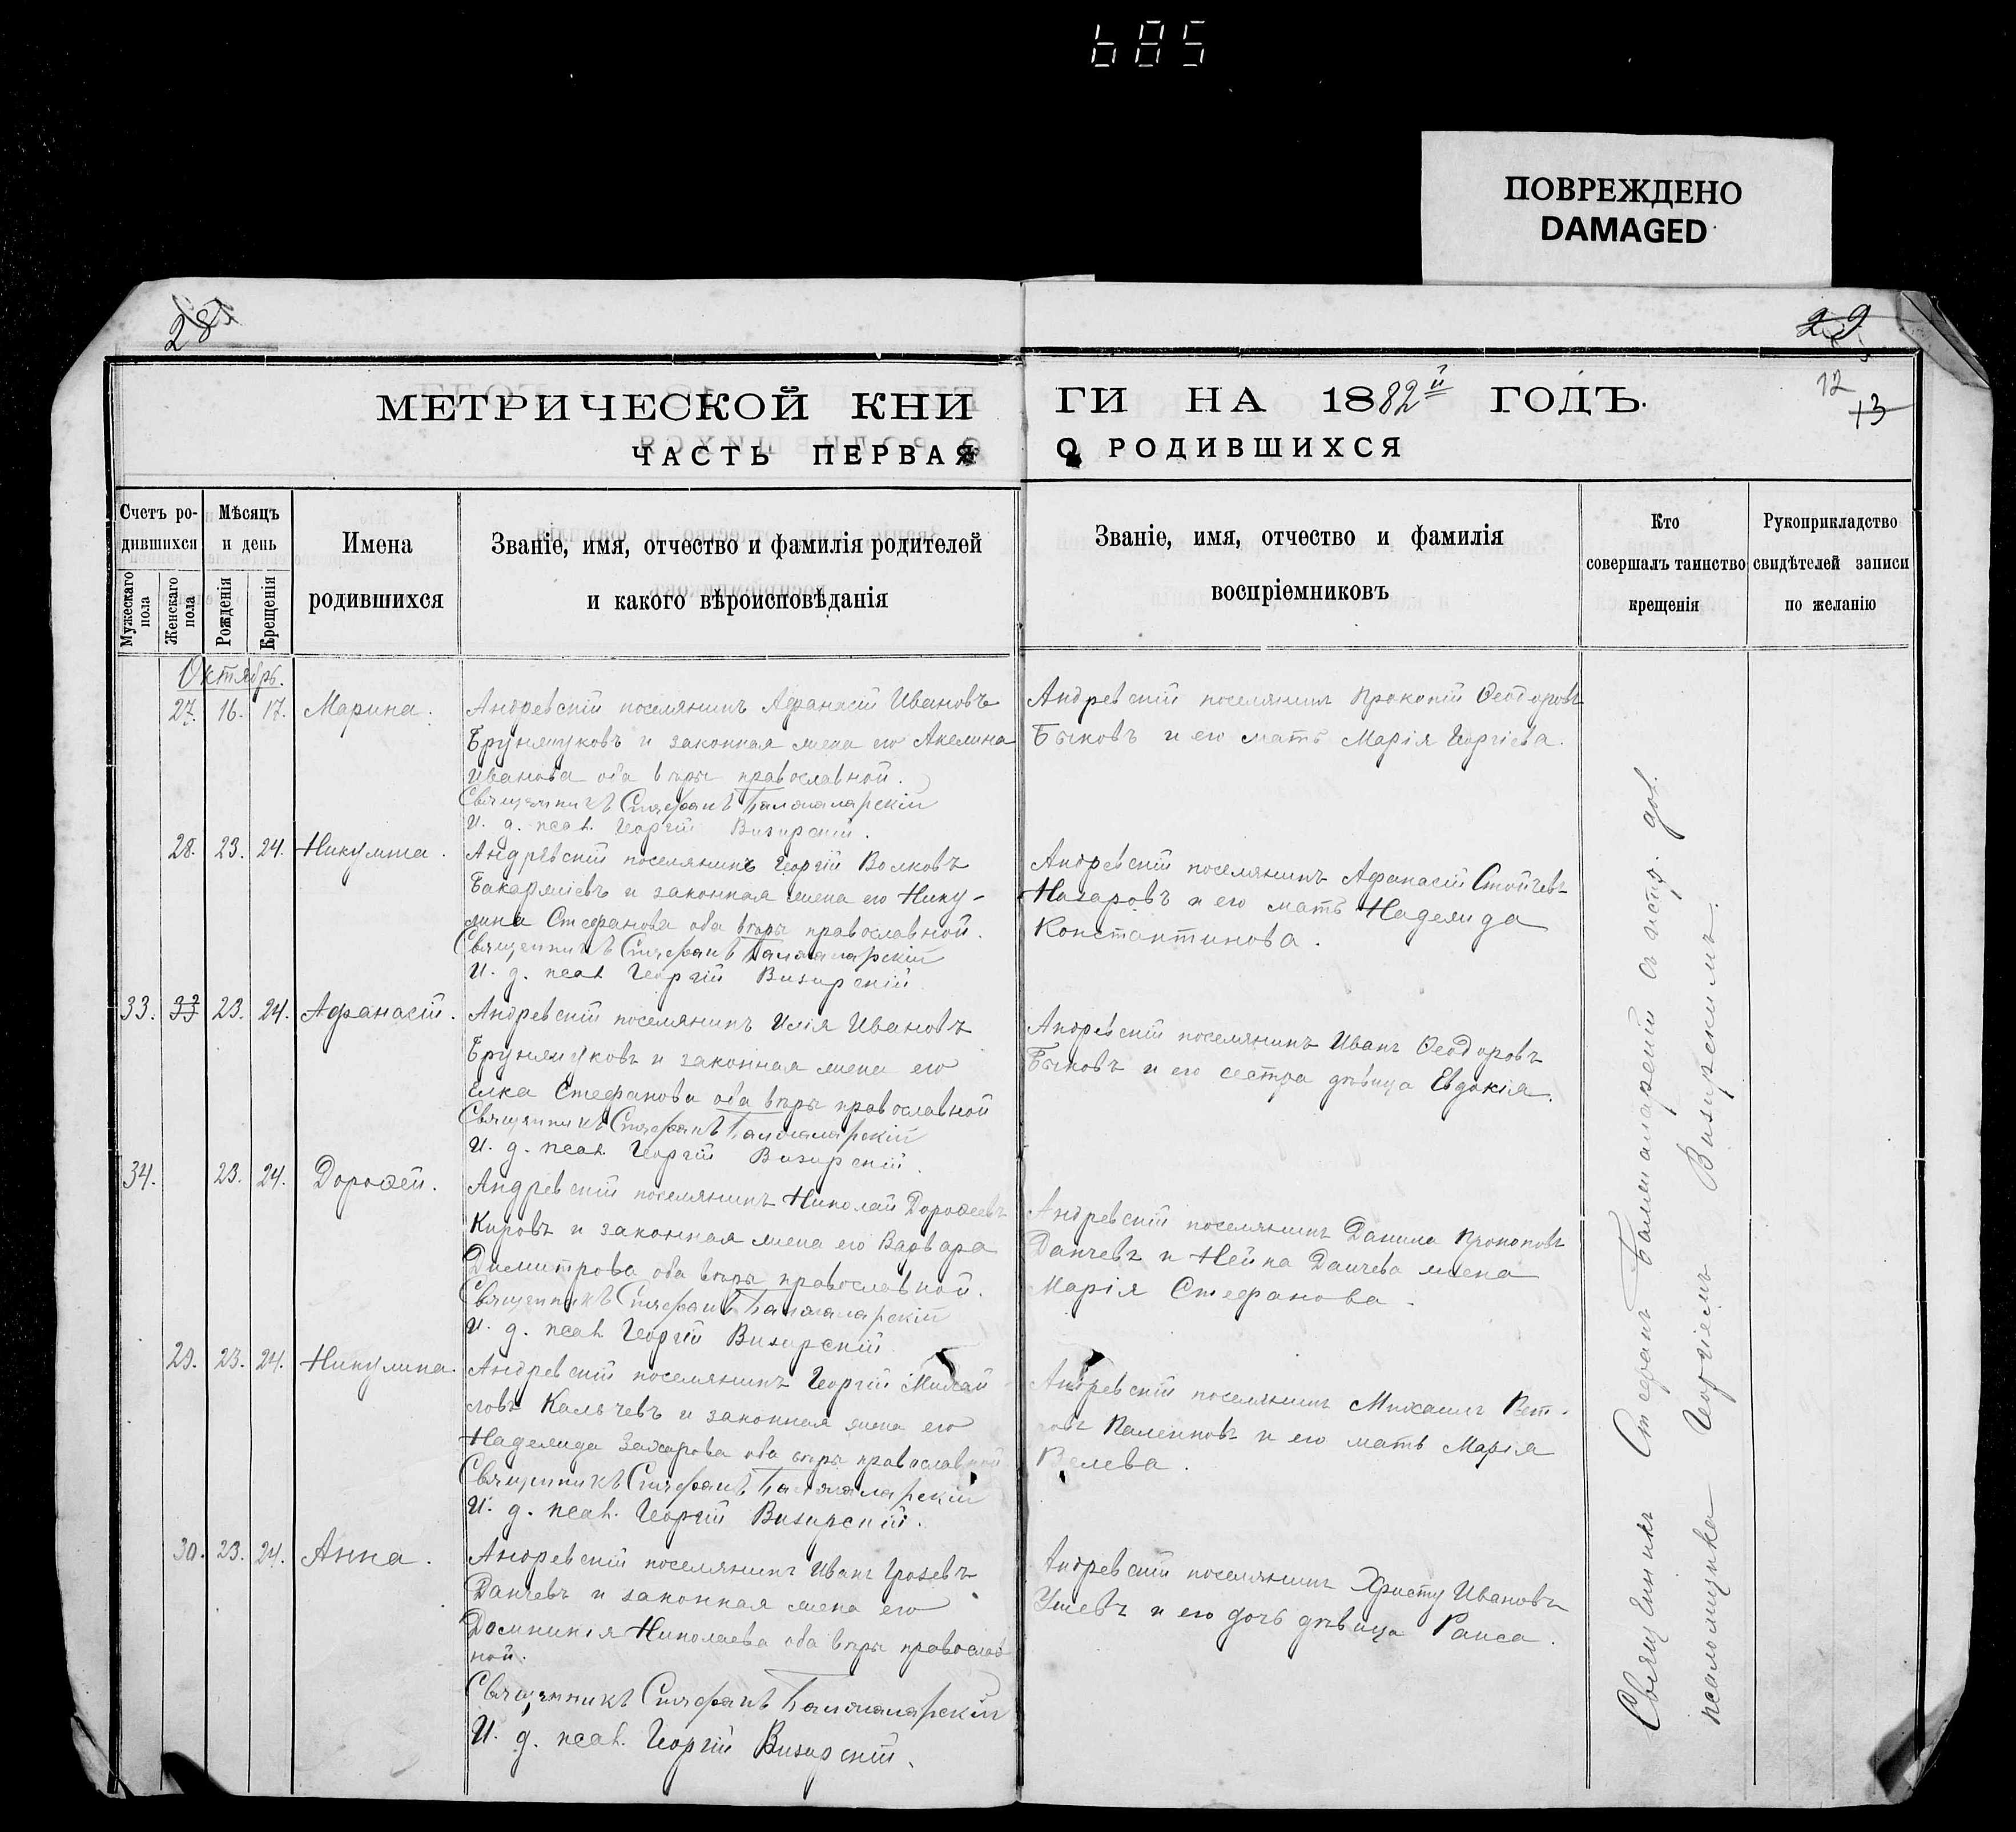 685
ПОВРЕЖДЕНО
DAMAGED
28
29
12
13
МЕТРИЧЕСКОЙ КНИ
ГИ НА 1882й ГОДЪ.
ЧАСТЬ ПЕРВАЯ
О РОДИВШИХСЯ
Счетъ ро-
дившихся
Мужескаго
пола
Женскаго
пола
Мѣсяцъ
и день
Рожденія
Крещенія
Имена
родившихся
Званіе, имя, отчество и фамилія родителей
и какого вѣроисповѣданія
Званіе, имя, отчество и фамилія
воспріемниковъ
Кто
совершалъ таинство
крещенія
Рукоприкладство
свидѣтелей записи
по желанію
Октябрь.
27. 16. 17. Марина.
Андревскій поселянинъ Афанасій Ивановъ
и законная жена его Акелина
Иванова оба вѣры православной.
Священникъ Стефанъ
И. д. псал. Георгій Визирскій.
Андревскій поселянинъ Прокопій Ѳеодоровъ
Быковъ и его мать Марія Георгіева.
28. 23. 24. Никулина.
Андревскій поселянинъ Георгій Волковъ
и законная жена его Нику-
лина Стефанова оба вѣры православной.
Священникъ Стефанъ
И. д. псал. Георгій Визирскій
Андревскій поселянинъ Афанасій Стойчевъ
Назаровъ и его мать Надежда
Константинова.
33. 33 23. 24. Афанасій.
Андревскій поселянинъ Илія Ивановъ
и законная жена его
Елка Стефанова оба вѣры православной
Священникъ Стефанъ
И. д. псал. Георгій Визирскій.
Андревскій поселянинъ Иванъ Ѳеодоровъ
Быковъ и его сестра дѣвица Евдокія.
34. 23. 24. Дороѳей.
Андревскій поселянинъ Николай Дороѳеевъ
Кировъ и законная жена его Варвара
Димитрова оба вѣры православной.
Священникъ Стефанъ
И. д. псал. Георгій Визирскій
Андревскій поселянинъ Данила Прокоповъ
Данчевъ и Нейка Данчева жена
Марія Стефанова.
29. 23. 24. Никулина.
Андревскій поселянинъ Георгій Михай
ловъ Калчевъ и законная жена его
Надежда Захарова оба вѣры православной
Священникъ Стефанъ
И. д. псал. Георгій Визирскій.
Андревскій поселянинъ Михаилъ Пет-
ровъ и его мать Марія
Велева.
30. 23. 24. Анна.
Андревскій поселянинъ Иванъ Грозевъ
Данчевъ и законная жена его
Домникія Николаева оба вѣры православ
ной.
Священникъ Стефанъ
И. д. псал. Георгій Визирскій.
Андревскій поселянинъ Христу Ивановъ
Ушевъ и его дочь дѣвица Раиса.
Священникъ Стефанъ съ испр. дол.
псаломщика Георгіемъ Визирскимъ.